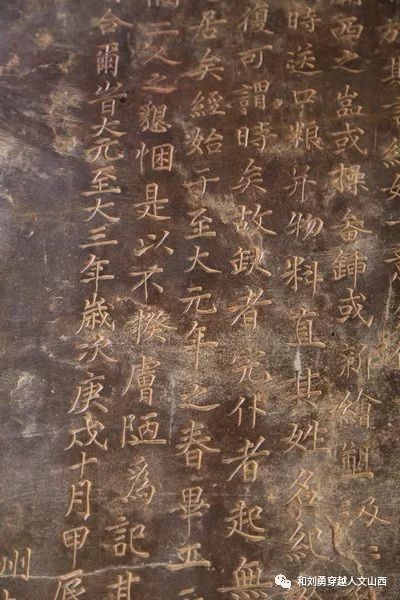 西之嵓或操畚鍤或彩繪塑汲
時送口粮并物料直其姓名紀
復可謂時矣故缺者完仆者起無
居矣經始于至大元年之春畢工
二人之懇悃是以不揆膚陋為記其
合爾旹大元至大三年歲次庚戌十月甲辰
州
和刘勇穿越人文山西